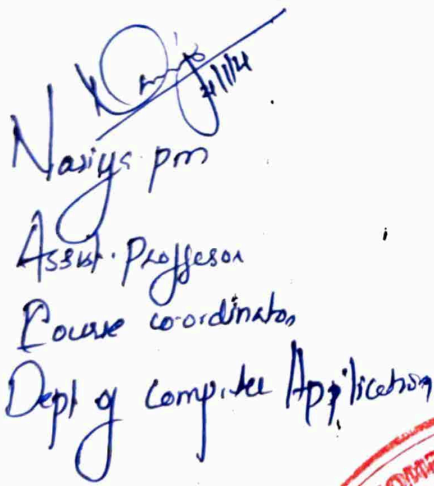 Nasiya pm
Assist. Proffesor
Course co-ordinator
Dept of Computer Application